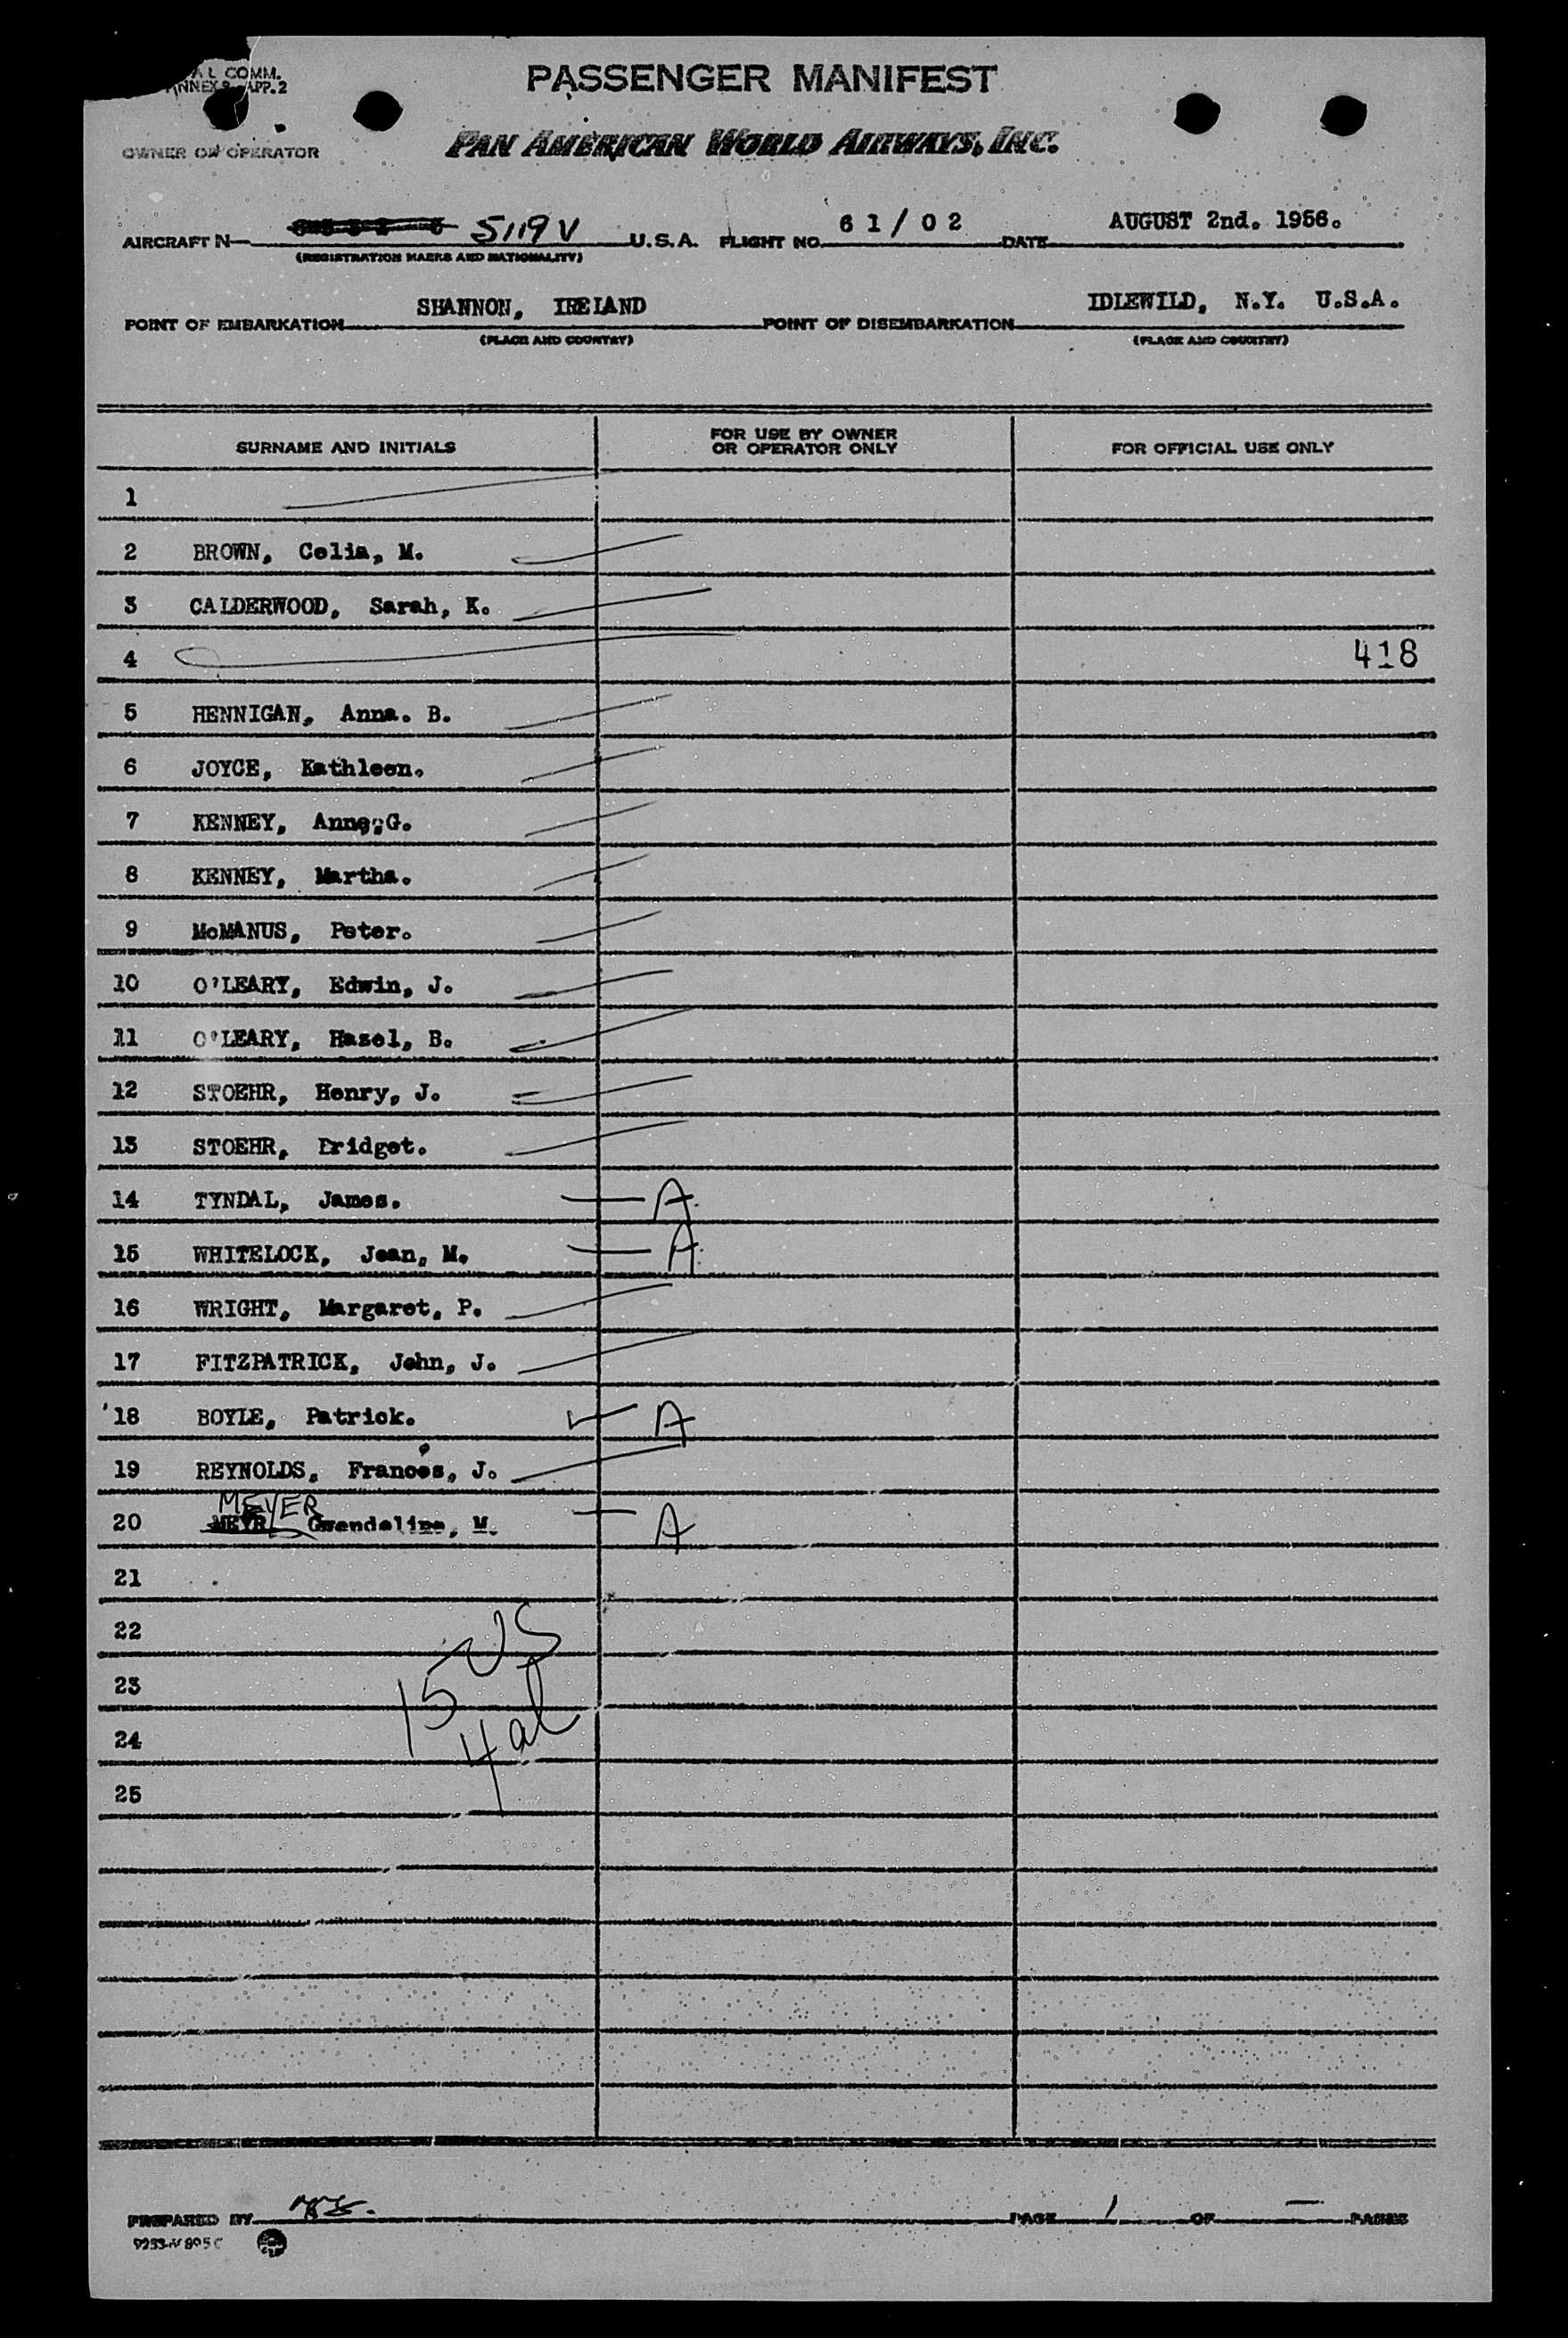 AL COMM.
ANNEX 9 APP. 2
PASSENGER MANIFEST
OWNER OR OPERATOR PAN AMERICAN WORLD AIRWAYS, INC.
AIRCRAFT N 5119V U.S.A. FLIGHT NO. 61/02 DATE AUGUST 2nd. 1956.
(REGISTRATION MARKS AND NATIONALITY)
POINT OF EMBARKATION SHANNON, IRELAND POINT OF DISEMBARKATION IDLEWILD, N.Y. U.S.A.
(PLACE AND COUNTRY) (PLACE AND COUNTRY)
SURNAME AND INITIALS FOR USE BY OWNER OR OPERATOR ONLY FOR OFFICIAL USE ONLY
1
2 BROWN, Celia, M.
3 CALDERWOOD, Sarah, K.
4 418
5 HENNIGAN, Anna. B.
6 JOYCE, Kathleen.
7 KENNEY, Anne, G.
8 KENNEY, Martha.
9 McMANUS, Peter.
10 O'LEARY, Edwin, J.
11 O'LEARY, Hazel, B.
12 STOEHR, Henry, J.
13 STOEHR, Bridget.
14 TYNDAL, James. A
15 WHITELOCK, Jean, M. A
16 WRIGHT, Margaret, P.
17 FITZPATRICK, John, J.
18 BOYLE, Patrick. A
19 REYNOLDS, Frances, J.
MEYER
20 MEYR Gwendeline, M. A
21
22
23
24
25
15 US
4 al
PREPARED BY PAGE 1 OF — PAGES